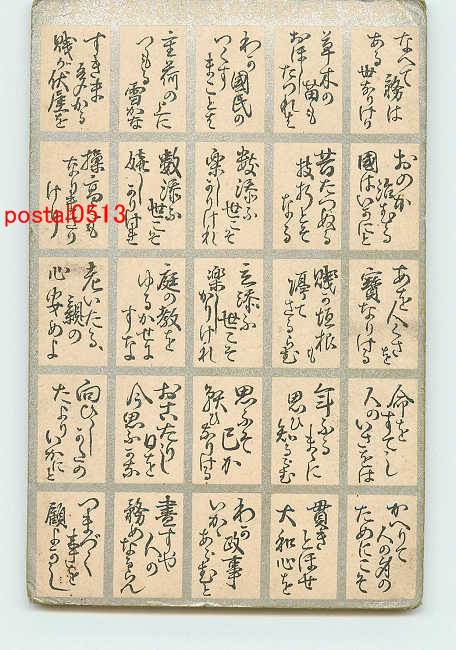 なへて務は
ある世なりけり
草木の苗も
おほしたつれを
わが國民の
いくすまことを
重荷の上に
つもる雪かな
すきま多かる
賤が伏屋を
おのか治むる
國はいかにと
昔たつぬる
枝折とそ
なる
数添ふ
世こそ
楽しかりけれ
数添ふ
世こそ
嬉しかりけれ
操高くも
なりまさり
けり
あを人くさを
寶なりける
賤が垣根も
ざるらむ
立添ふ
世こそ
楽しかりけれ
庭の教を
ゆるかせよ
すな
老いたる
親の
心安めよ
命をすてし
人のいさをは
年ふるまゝに
思ひ知るらむ
思ふそ己か
なりける
おこたりし
日を
今思ふかな
向ひし
たよりいかにと
かへりて
人の身の
ためにこそ
貫きとほせ
大和心を
わが政事
いかにあらむと
盡すや
人の
務めなるらん
つまづく
事を
顧よかし
postal0513